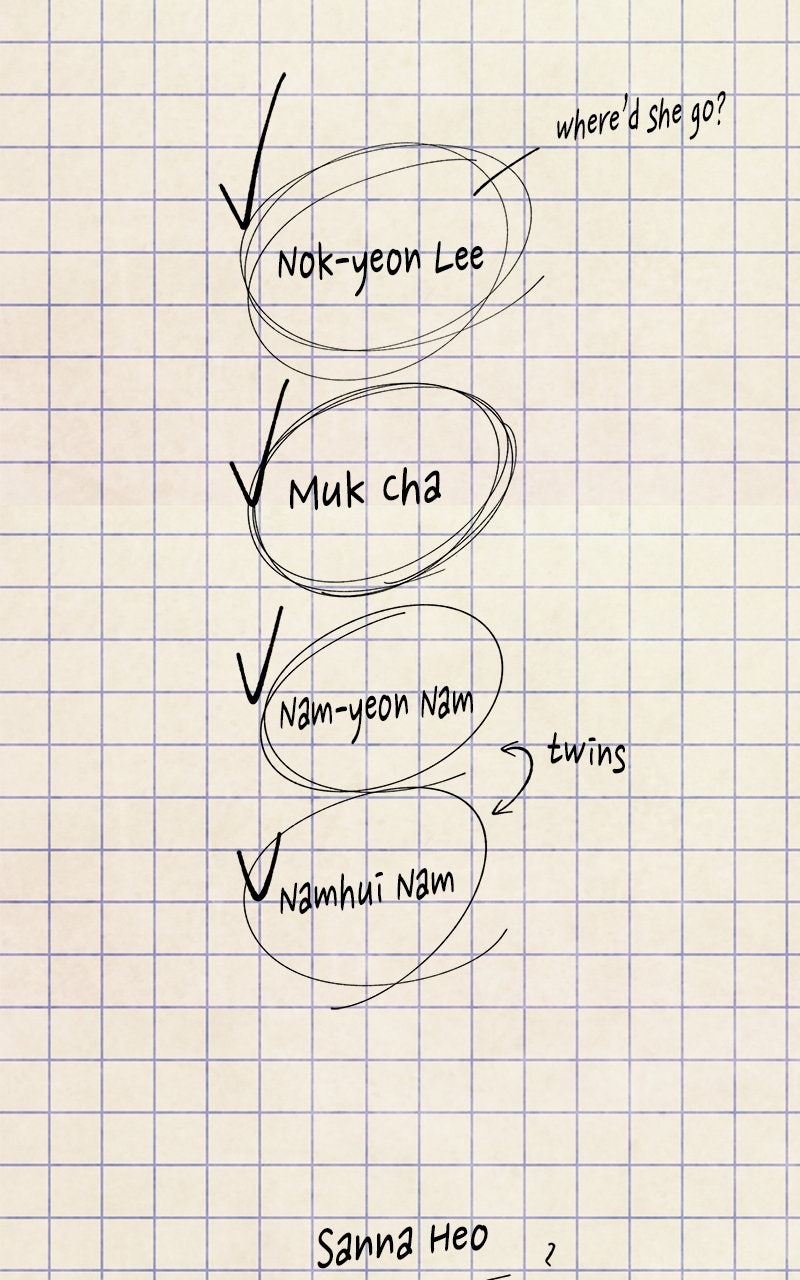 where'd she go?
Nok-yeon Lee
Muk Cha
Nam-yeon Nam
twins
Namhui Nam
Sanna Heo
?